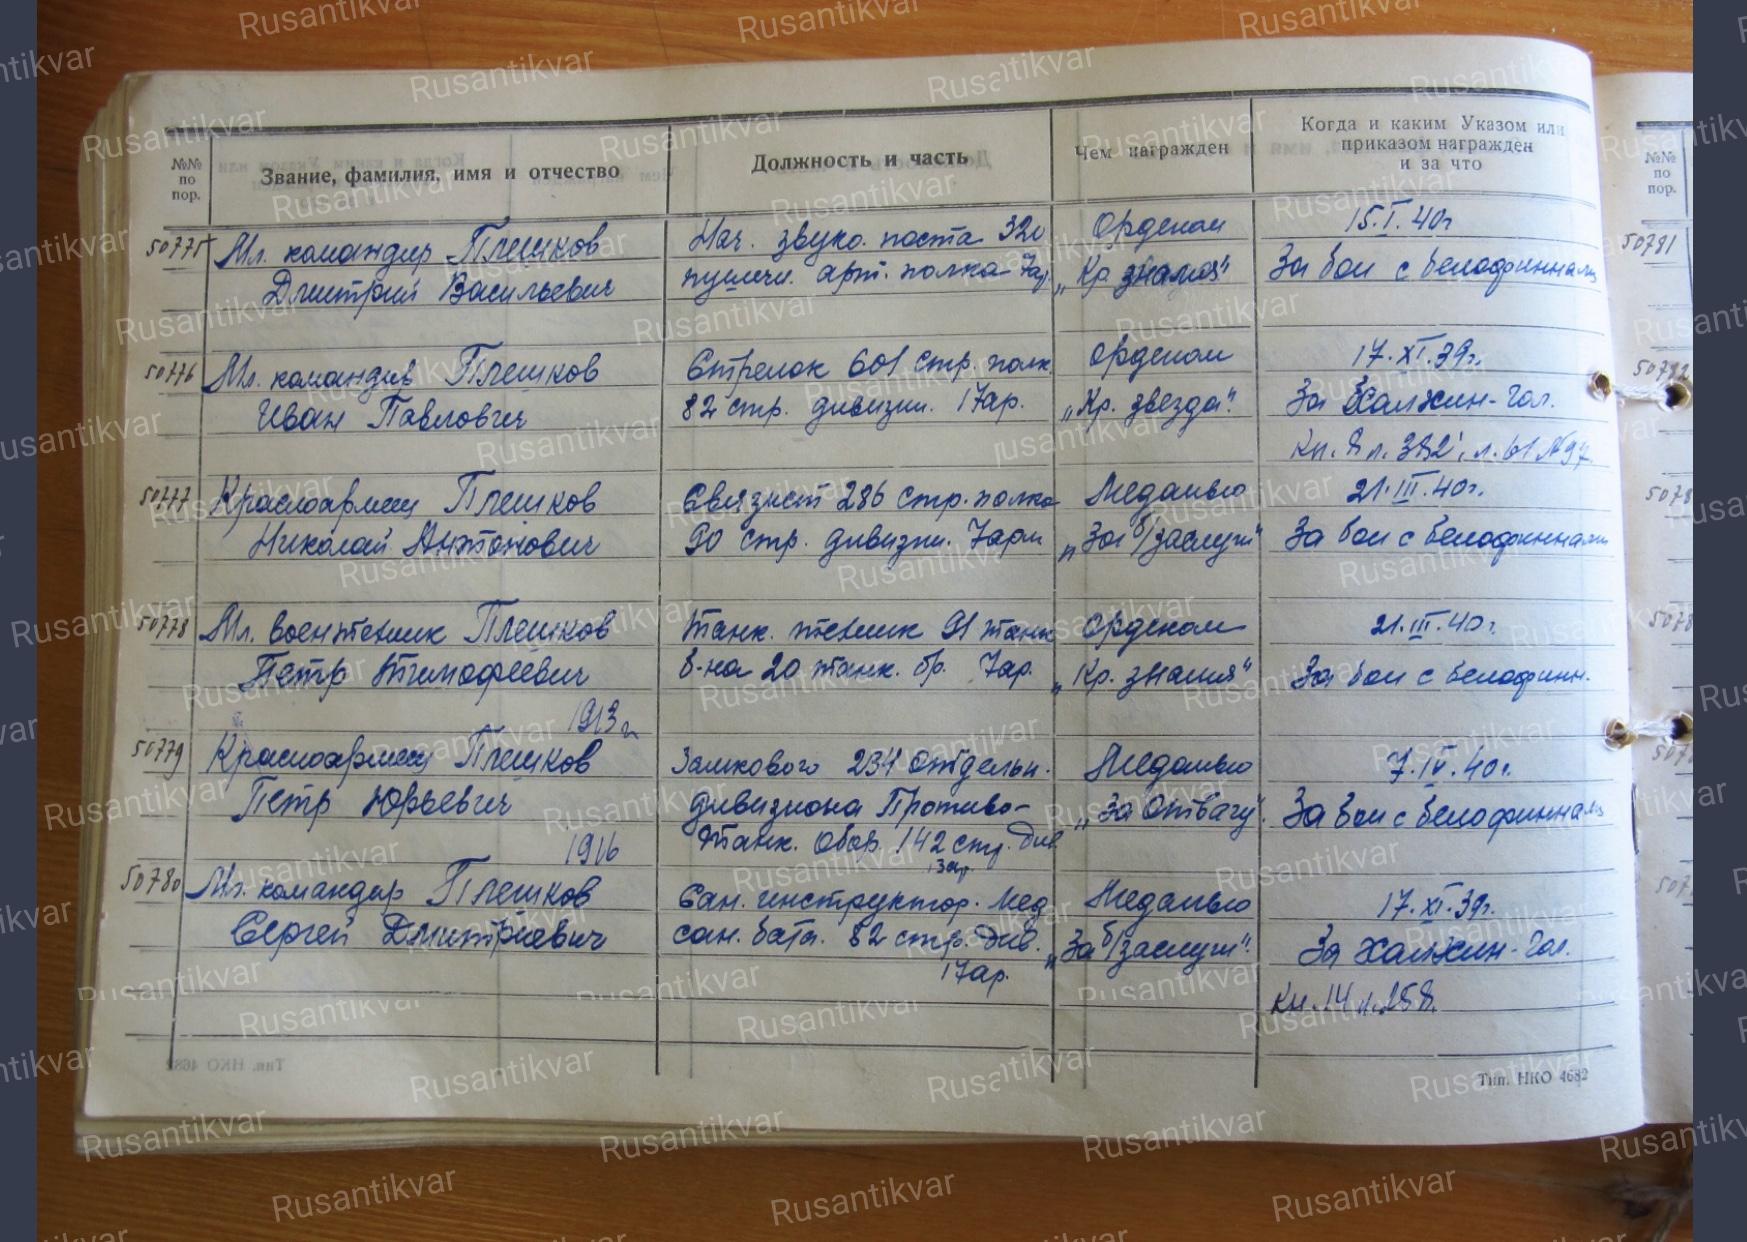 №№ по пор.
Звание, фамилия, имя и отчество
Должность и часть
Чем награжден
Когда и каким Указом или
приказом награжден
и за что
50775
Мл. командир Плешков
Дмитрий Васильевич
Нач. звуко. поста 320
пушечн. арт. полка 7ар
Орденом
„Кр. знамя"
15.I.40г
За бои с белофиннами
50776
Мл. командир Плешков
Иван Павлович
Стрелок 601 стр. полк.
82 стр. дивизии. 17ар.
Орденом
„Кр. звезда".
17.XI.39г.
За Халхин-Гол.
Кн. 8 л. 382, л. 61 №97.
50777
Красноармеец Плешков
Николай Антонович
Связист 286 стр. полка
90 стр. дивизии. 7арм
Медалью
„За б/заслуги"
21.III.40г.
За бои с белофиннами
50778
Мл. воентехник Плешков
Петр Тимофеевич
1913г
Танк. техник 91 танк
б-на 20 танк. бр. 7ар.
Орденом
„Кр. знамя"
21.III.40г.
За бои с белофинн.
50779
Красноармеец Плешков
Петр Юрьевич
1916
Замкового 234 отдельн.
дивизиона Противо-
танк. обор. 142 стр. див
13ар.
Медалью
„За отвагу".
7.IV.40г.
За бои с белофиннами
50780
Мл. командир Плешков
Сергей Дмитриевич
Сан. инструктор. мед
сан. бата. 82 стр. див.
17ар.
Медалью
„За б/заслуги".
17.XI.39г.
За Халхин-Гол.
Кн. 14 л. 258.
Тип. НКО 4682
№№ по пор.
50781
50782
Rusantikvar